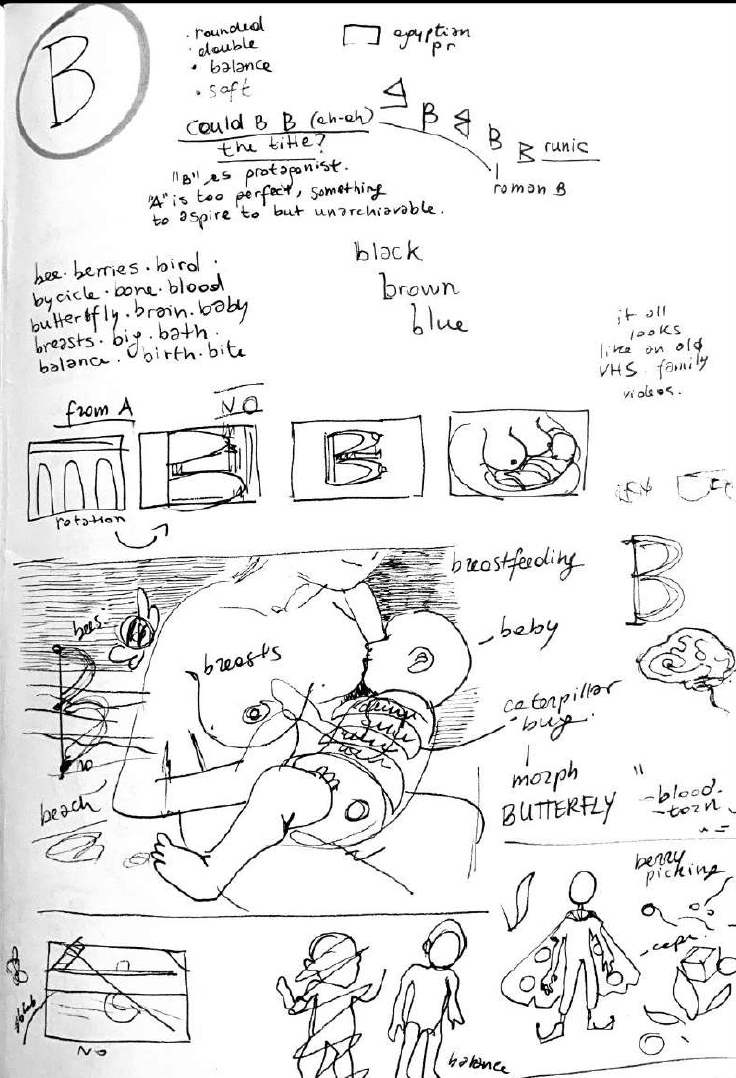 B
· rounded
· double
• balance
• soft
egyptian
pr
could B B (eh-eh)
the title?
B
B
B runic
roman B
"B" es protagonist.
"A" is too perfect, something
to aspire to but unarchiavable.
bee · berries · bird ·
bycicle · bone · blood
butterfly · brain · baby
breasts · big · bath ·
balance · birth · bite
black
brown
blue
it all
looks
like an old
VHS family
videos.
from A
NO
B
B
rotation
breastfeeding
B
bees
breasts
baby
caterpillar
bug.
morph
BUTTERFLY
B
NO
beach
"
- blood -
- torn
berry
picking
NO
balance